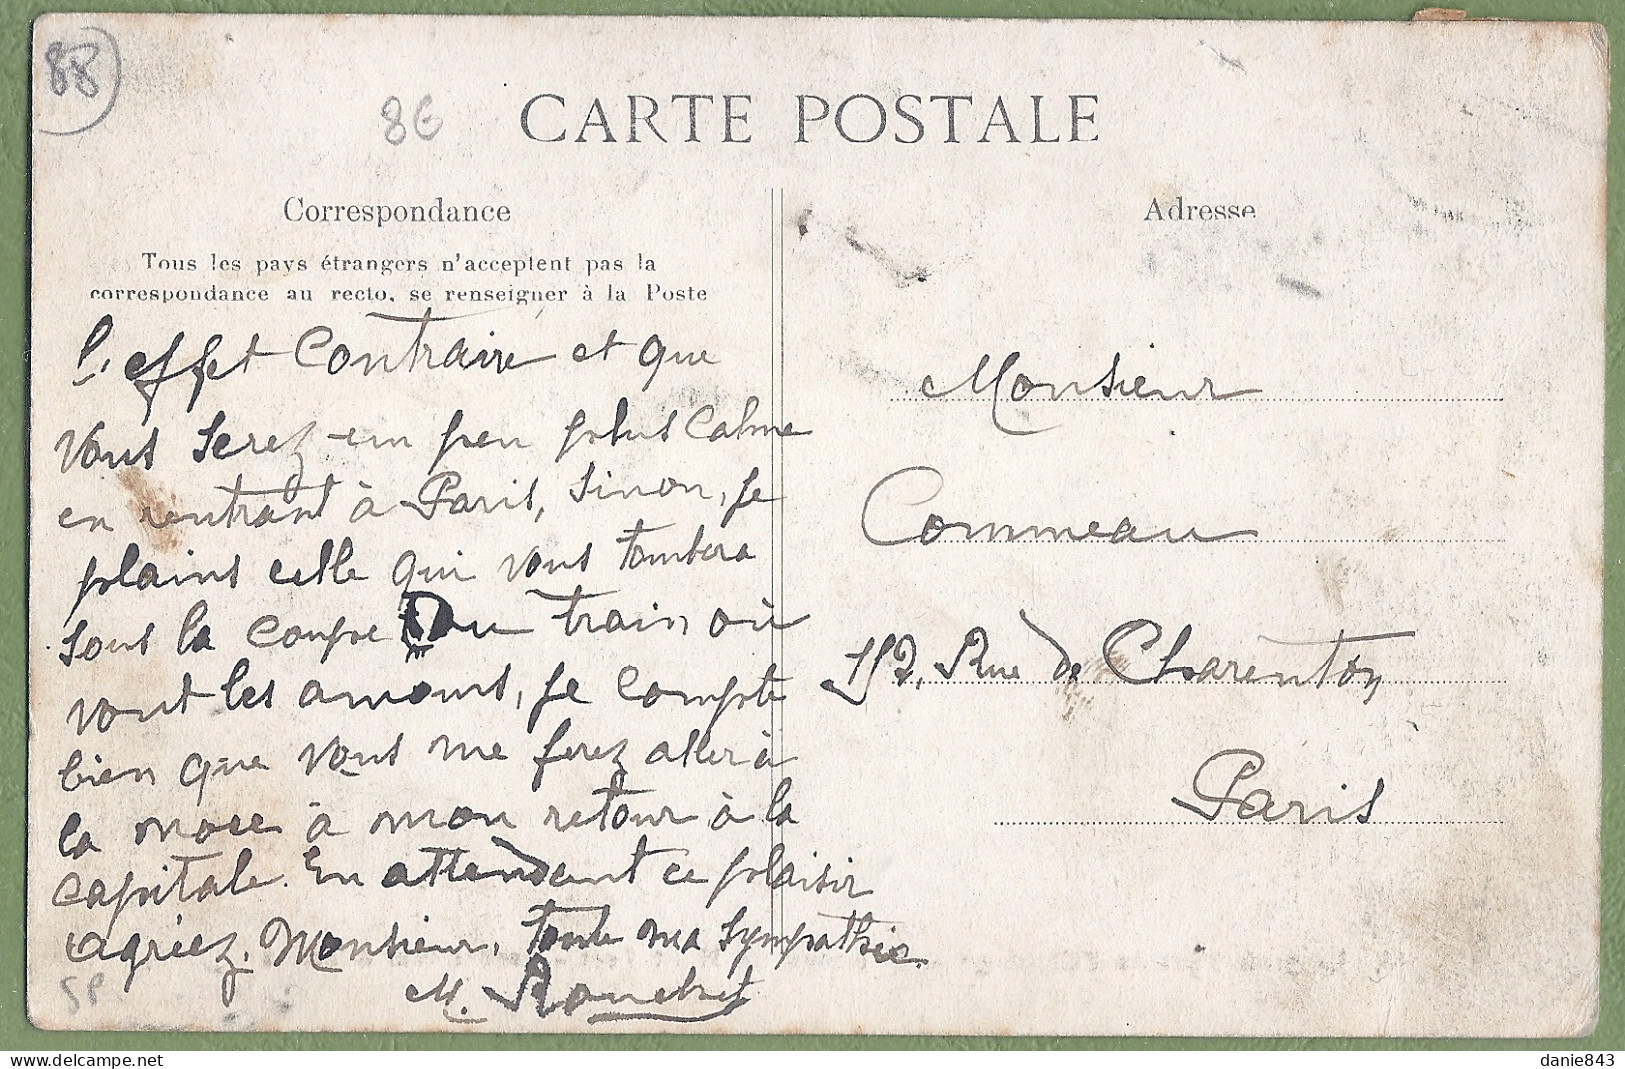 88
8€
CARTE POSTALE
Correspondance
Adresse
Tous les pays étrangers n'acceptent pas la
correspondance au recto, se renseigner à la Poste
l'effet contraire et que
vous serez un peu plus calme
en rentrant à Paris, sinon, je
plains celle qui vous tombera
sous la coupe Du train où
vont les amours, je compte
bien que vous me ferez aller à
la noce à mon retour à la
capitale. En attendant ce plaisir
agréez, Monsieur, toute ma sympathie.
M.
SP
Monsieur
Commeau
Rue de Charenton
Paris
danie843